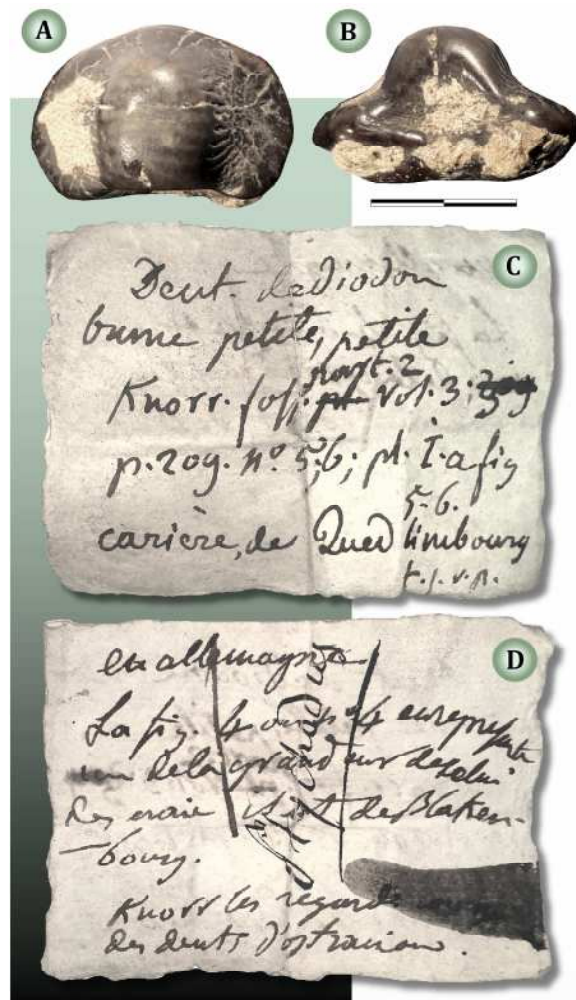 A
B
C
Dent. de diodon
brune petite, petite
part. 2
Knorr. foss. vol. 3;
p. 209. nº 5,6; pl. I. a fig
5-6.
carière, de Quedlimbourg
t. s. v. p.
D
en allemagne
La fig. 4 en represente
de la grandeur de celui
des craie de Blaken-
-bourg.
Ptychodus
Knorr les regarde comme
des dents d'ostracion.